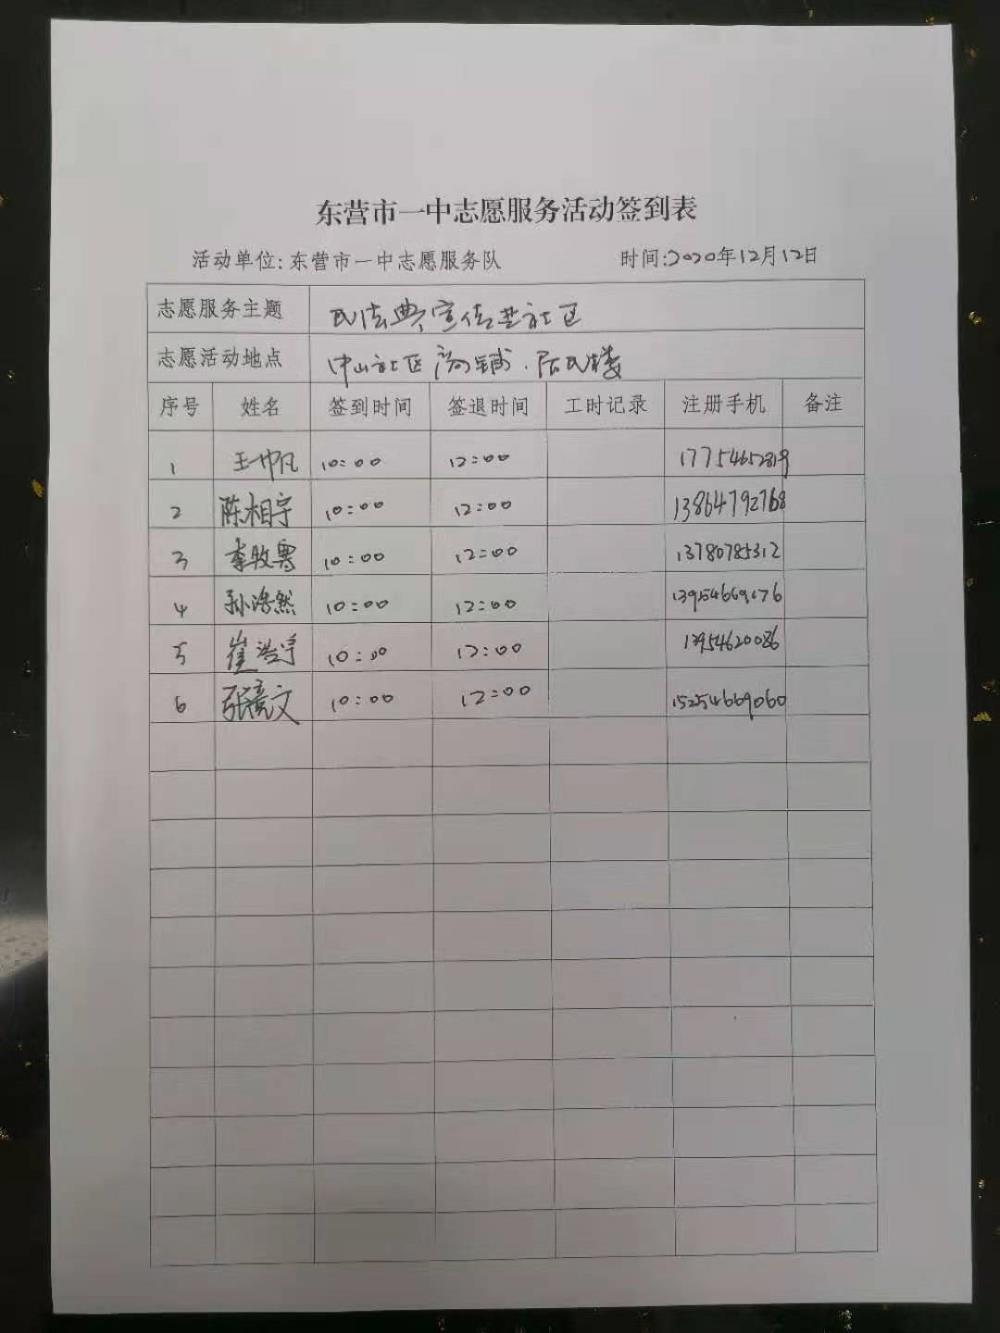 东营市一中志愿服务活动签到表
活动单位:东营市一中志愿服务队 时间:2020年12月12日
志愿服务主题 民法典宣传进社区
志愿活动地点 中山社区商铺.居民楼
序号 姓名 签到时间 签退时间 工时记录 注册手机 备注
1 王一帆 10:00 12:00 17754652819
2 陈相宇 10:00 12:00 13864792768
3 李牧 10:00 12:00 13780785312
4 孙浩然 10:00 12:00
5 崔浩宇 10:00 12:00 13954620086
6 张竞文 10:00 12:00 15254669060